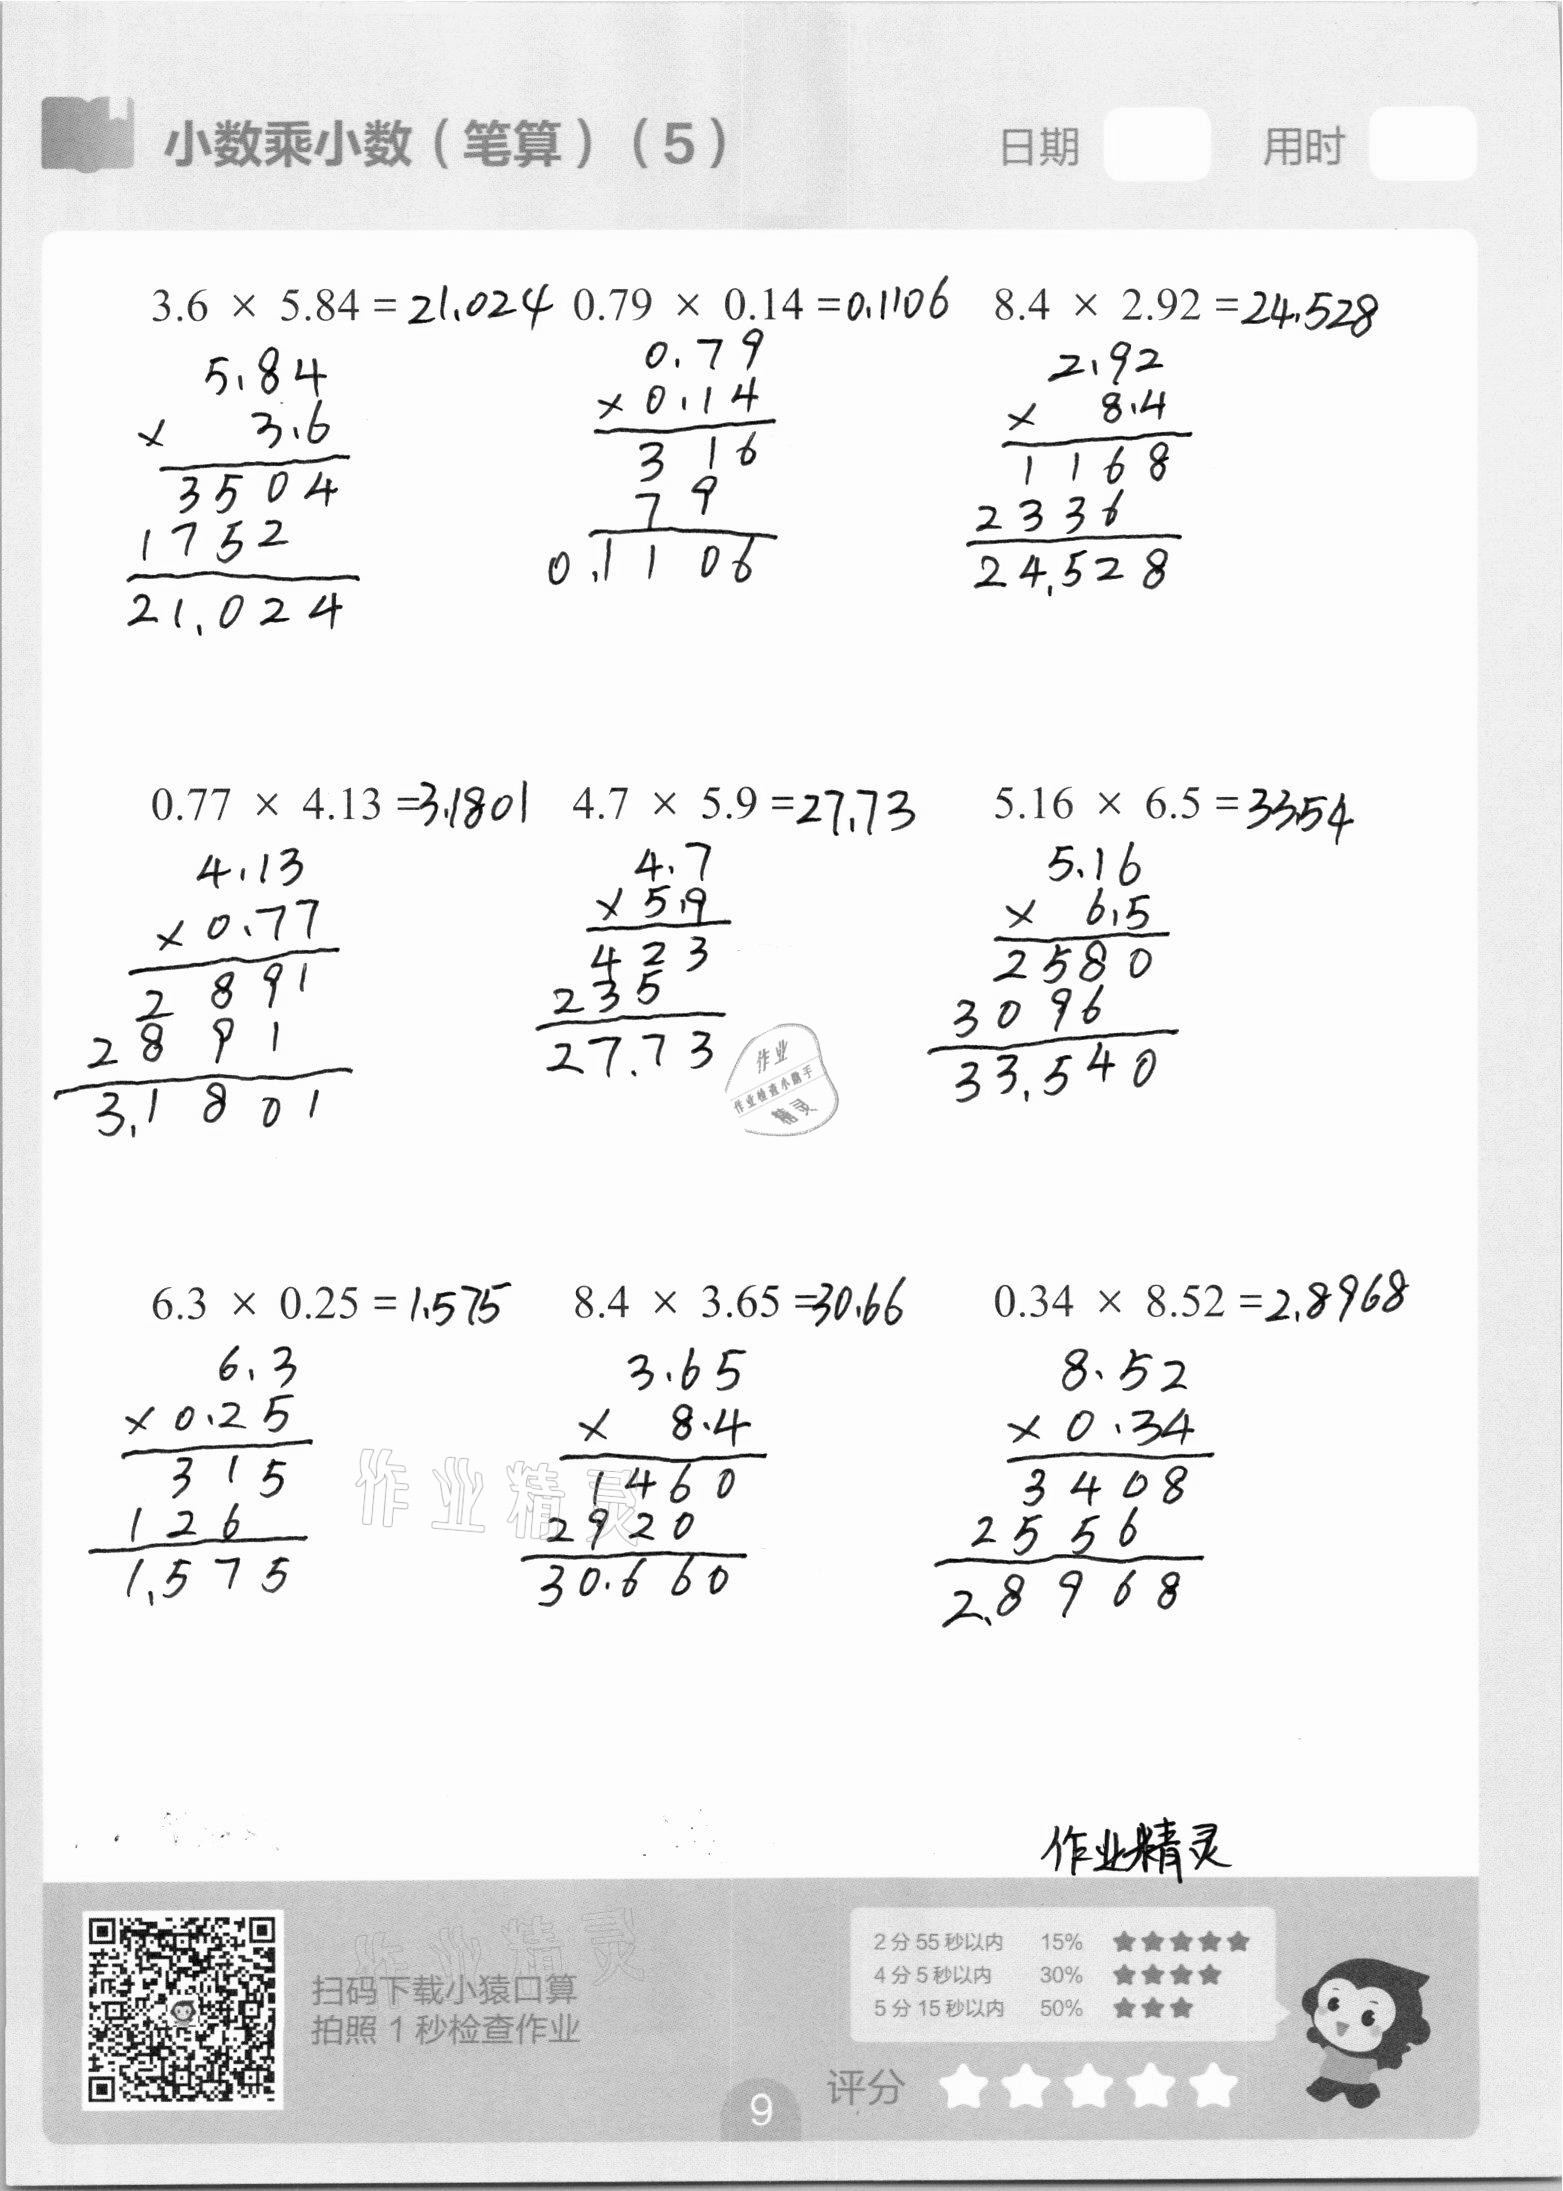 小数乘小数（笔算）（5） 日期 用时
3.6 × 5.84 = 21.024 0.79 × 0.14 = 0.1106 8.4 × 2.92 = 24.528
5.84 0.79 2.92
× 3.6 × 0.14 × 8.4
3504 316 1168
1752 79 2336
21.024 0.1106 24.528
0.77 × 4.13 = 3.1801 4.7 × 5.9 = 27.73 5.16 × 6.5 = 33.54
4.13 4.7 5.16
× 0.77 × 5.9 × 6.5
2891 423 2580
2891 235 3096
3.1801 27.73 33.540
作业
作业检查小助手
精灵
6.3 × 0.25 = 1.575 8.4 × 3.65 = 30.66 0.34 × 8.52 = 2.8968
6.3 3.65 8.52
× 0.25 × 8.4 × 0.34
315 1460 3408
126 2920 2556
1.575 30.660 2.8968
作业精灵
作业精灵
作业精灵
扫码下载小猿口算
拍照 1 秒检查作业
2 分 55 秒以内 15% ★★★★★
4 分 5 秒以内 30% ★★★★
5 分 15 秒以内 50% ★★★
评分
9